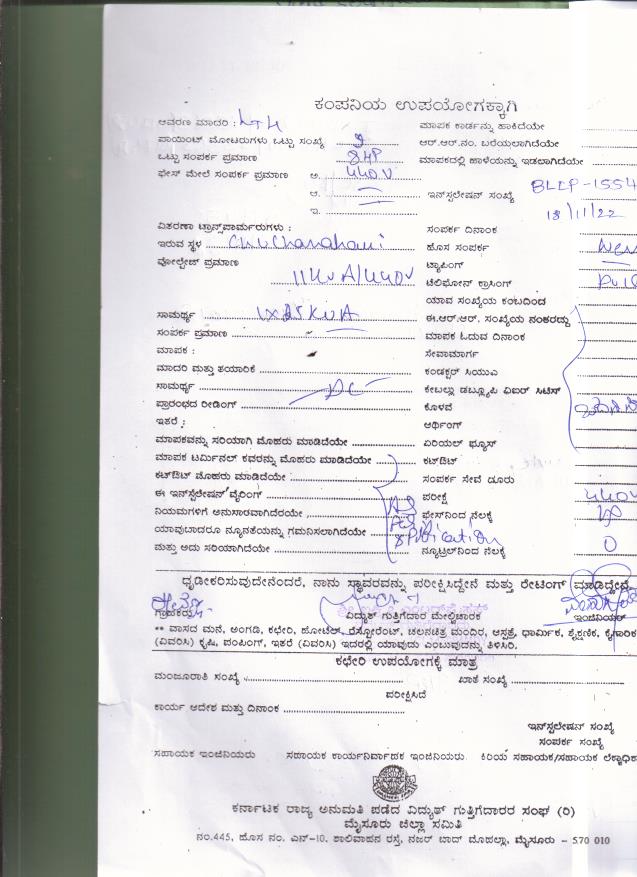 ಕಂಪನಿಯ ಉಪಯೋಗಕ್ಕಾಗಿ
ಆವರಣ ಮಾದರಿ : ಮಾಪಕ ಕಾರ್ಡನ್ನು ಹಾಕಿದೆಯೇ
ಪಾಯಿಂಟ್ ಮೋಟರುಗಳು ಒಟ್ಟು ಸಂಖ್ಯೆ 9 ಆರ್.ಆರ್.ನಂ. ಬರೆಯಲಾಗಿದೆಯೇ
ಒಟ್ಟು ಸಂಪರ್ಕ ಪ್ರಮಾಣ 8HP ಮಾಪಕದಲ್ಲಿ ಹಾಳೆಯನ್ನು ಇಡಲಾಗಿದೆಯೇ
ಫೇಸ್ ಮೇಲೆ ಸಂಪರ್ಕ ಪ್ರಮಾಣ ಅ. 440V
ಆ. ಇನ್‌ಸ್ಟಲೇಷನ್ ಸಂಖ್ಯೆ BLEP-1554
ಇ. 18/11/22
ವಿತರಣಾ ಟ್ರಾನ್ಸ್‌ಪಾರ್ಮರುಗಳು : ಸಂಪರ್ಕ ದಿನಾಂಕ
ಇರುವ ಸ್ಥಳ ಹೊಸ ಸಂಪರ್ಕ New
ವೋಲ್ಟೇಜ್ ಪ್ರಮಾಣ 11KVA/440V ಟ್ಯಾಪಿಂಗ್
ಟೆಲಿಫೋನ್ ಕ್ರಾಸಿಂಗ್
ಯಾವ ಸಂಖ್ಯೆಯ ಕಂಬದಿಂದ
ಸಾಮರ್ಥ್ಯ 1X25KVA ಈ.ಆರ್.ಆರ್. ಸಂಖ್ಯೆಯ ನಂತರದ್ದು
ಸಂಪರ್ಕ ಪ್ರಮಾಣ ಮಾಪಕ ಓದುವ ದಿನಾಂಕ
ಮಾಪಕ : ಸೇವಾಮಾರ್ಗ
ಮಾದರಿ ಮತ್ತು ತಯಾರಿಕೆ ಕಂಡಕ್ಟರ್ ಸಿಯುಎ
ಸಾಮರ್ಥ್ಯ DC ಕೇಬಲ್ಲು ಡಬ್ಲ್ಯೂಪಿ ಏಐರ್ ಸಿಟಿಸ್
ಪ್ರಾರಂಭದ ರೀಡಿಂಗ್ ಕೊಳವೆ
ಇತರೆ : ಆರ್ಥಿಂಗ್
ಮಾಪಕವನ್ನು ಸರಿಯಾಗಿ ಮೊಹರು ಮಾಡಿದೆಯೇ ಏರಿಯಲ್ ಫ್ಯೂಸ್
ಮಾಪಕ ಟರ್ಮಿನಲ್ ಕವರನ್ನು ಮೊಹರು ಮಾಡಿದೆಯೇ ಕಟ್‌ಔಟ್
ಕಟ್‌ಔಟ್ ಮೊಹರು ಮಾಡಿದೆಯೇ ಸಂಪರ್ಕ ಸೇವೆ ದೂರು
ಈ ಇನ್‌ಸ್ಟಲೇಷನ್ ವೈರಿಂಗ್ ಪರೀಕ್ಷೆ 440V
ನಿಯಮಗಳಿಗೆ ಅನುಸಾರವಾಗಿದೆರೆಯೇ ಫೇಸ್‌ನಿಂದ ನೆಲಕ್ಕೆ
ಯಾವುಬಾದರೂ ನ್ಯೂನತೆಯನ್ನು ಗಮನಿಸಲಾಗಿದೆಯೇ
ಮತ್ತು ಅದು ಸರಿಯಾಗಿದೆಯೇ ನ್ಯೂಟ್ರಲ್‌ನಿಂದ ನೆಲಕ್ಕೆ 0
ಧೃಡೀಕರಿಸುವುದೇನೆಂದರೆ, ನಾನು ಸ್ಥಾವರವನ್ನು ಪರೀಕ್ಷಿಸಿದ್ದೇನೆ ಮತ್ತು ರೇಟಿಂಗ್ ಮಾಡಿದ್ದೇನೆ
ಗ್ರಾಹಕರು ವಿದ್ಯುತ್ ಗುತ್ತಿಗೆದಾರ ಮೇಲ್ವಿಚಾರಕ ಇಂಜಿನಿಯರ್
** ವಾಸದ ಮನೆ, ಅಂಗಡಿ, ಕಛೇರಿ, ಹೋಟೆಲ್, ರೆಸ್ಟೋರೆಂಟ್, ಚಲನಚಿತ್ರ ಮಂದಿರ, ಆಸ್ಪತ್ರೆ, ಧಾರ್ಮಿಕ, ಶೈಕ್ಷಣಿಕ, ಕೈಗಾರಿಕೆ
(ವಿವರಿಸಿ) ಕೃಷಿ, ಪಂಪಿಂಗ್, ಇತರೆ (ವಿವರಿಸಿ) ಇದರಲ್ಲಿ ಯಾವುದು ಎಂಬುವುದನ್ನು ತಿಳಿಸಿರಿ.
ಕಛೇರಿ ಉಪಯೋಗಕ್ಕೆ ಮಾತ್ರ
ಮಂಜೂರಾತಿ ಸಂಖ್ಯೆ ಖಾತೆ ಸಂಖ್ಯೆ
ಪರೀಕ್ಷಿಸಿದೆ
ಕಾರ್ಯ ಆದೇಶ ಮತ್ತು ದಿನಾಂಕ
ಇನ್‌ಸ್ಟಲೇಷನ್ ಸಂಖ್ಯೆ
ಸಂಪರ್ಕ ಸಂಖ್ಯೆ
ಸಹಾಯಕ ಇಂಜಿನಿಯರು ಸಹಾಯಕ ಕಾರ್ಯನಿರ್ವಾಹಕ ಇಂಜಿನಿಯರು ಕಿರಿಯ ಸಹಾಯಕ/ಸಹಾಯಕ ಲೆಕ್ಕಾಧಿಕಾ
ಕರ್ನಾಟಕ ರಾಜ್ಯ ಅನುಮತಿ ಪಡೆದ ವಿದ್ಯುತ್ ಗುತ್ತಿಗೆದಾರರ ಸಂಘ (ರಿ)
ಮೈಸೂರು ಜಿಲ್ಲಾ ಸಮಿತಿ
ನಂ.445, ಹೊಸ ನಂ. ಎನ್-10. ಶಾಲಿವಾಹನ ರಸ್ತೆ, ನಜರ್ ಬಾದ್ ಮೊಹಲ್ಲಾ, ಮೈಸೂರು - 570 010